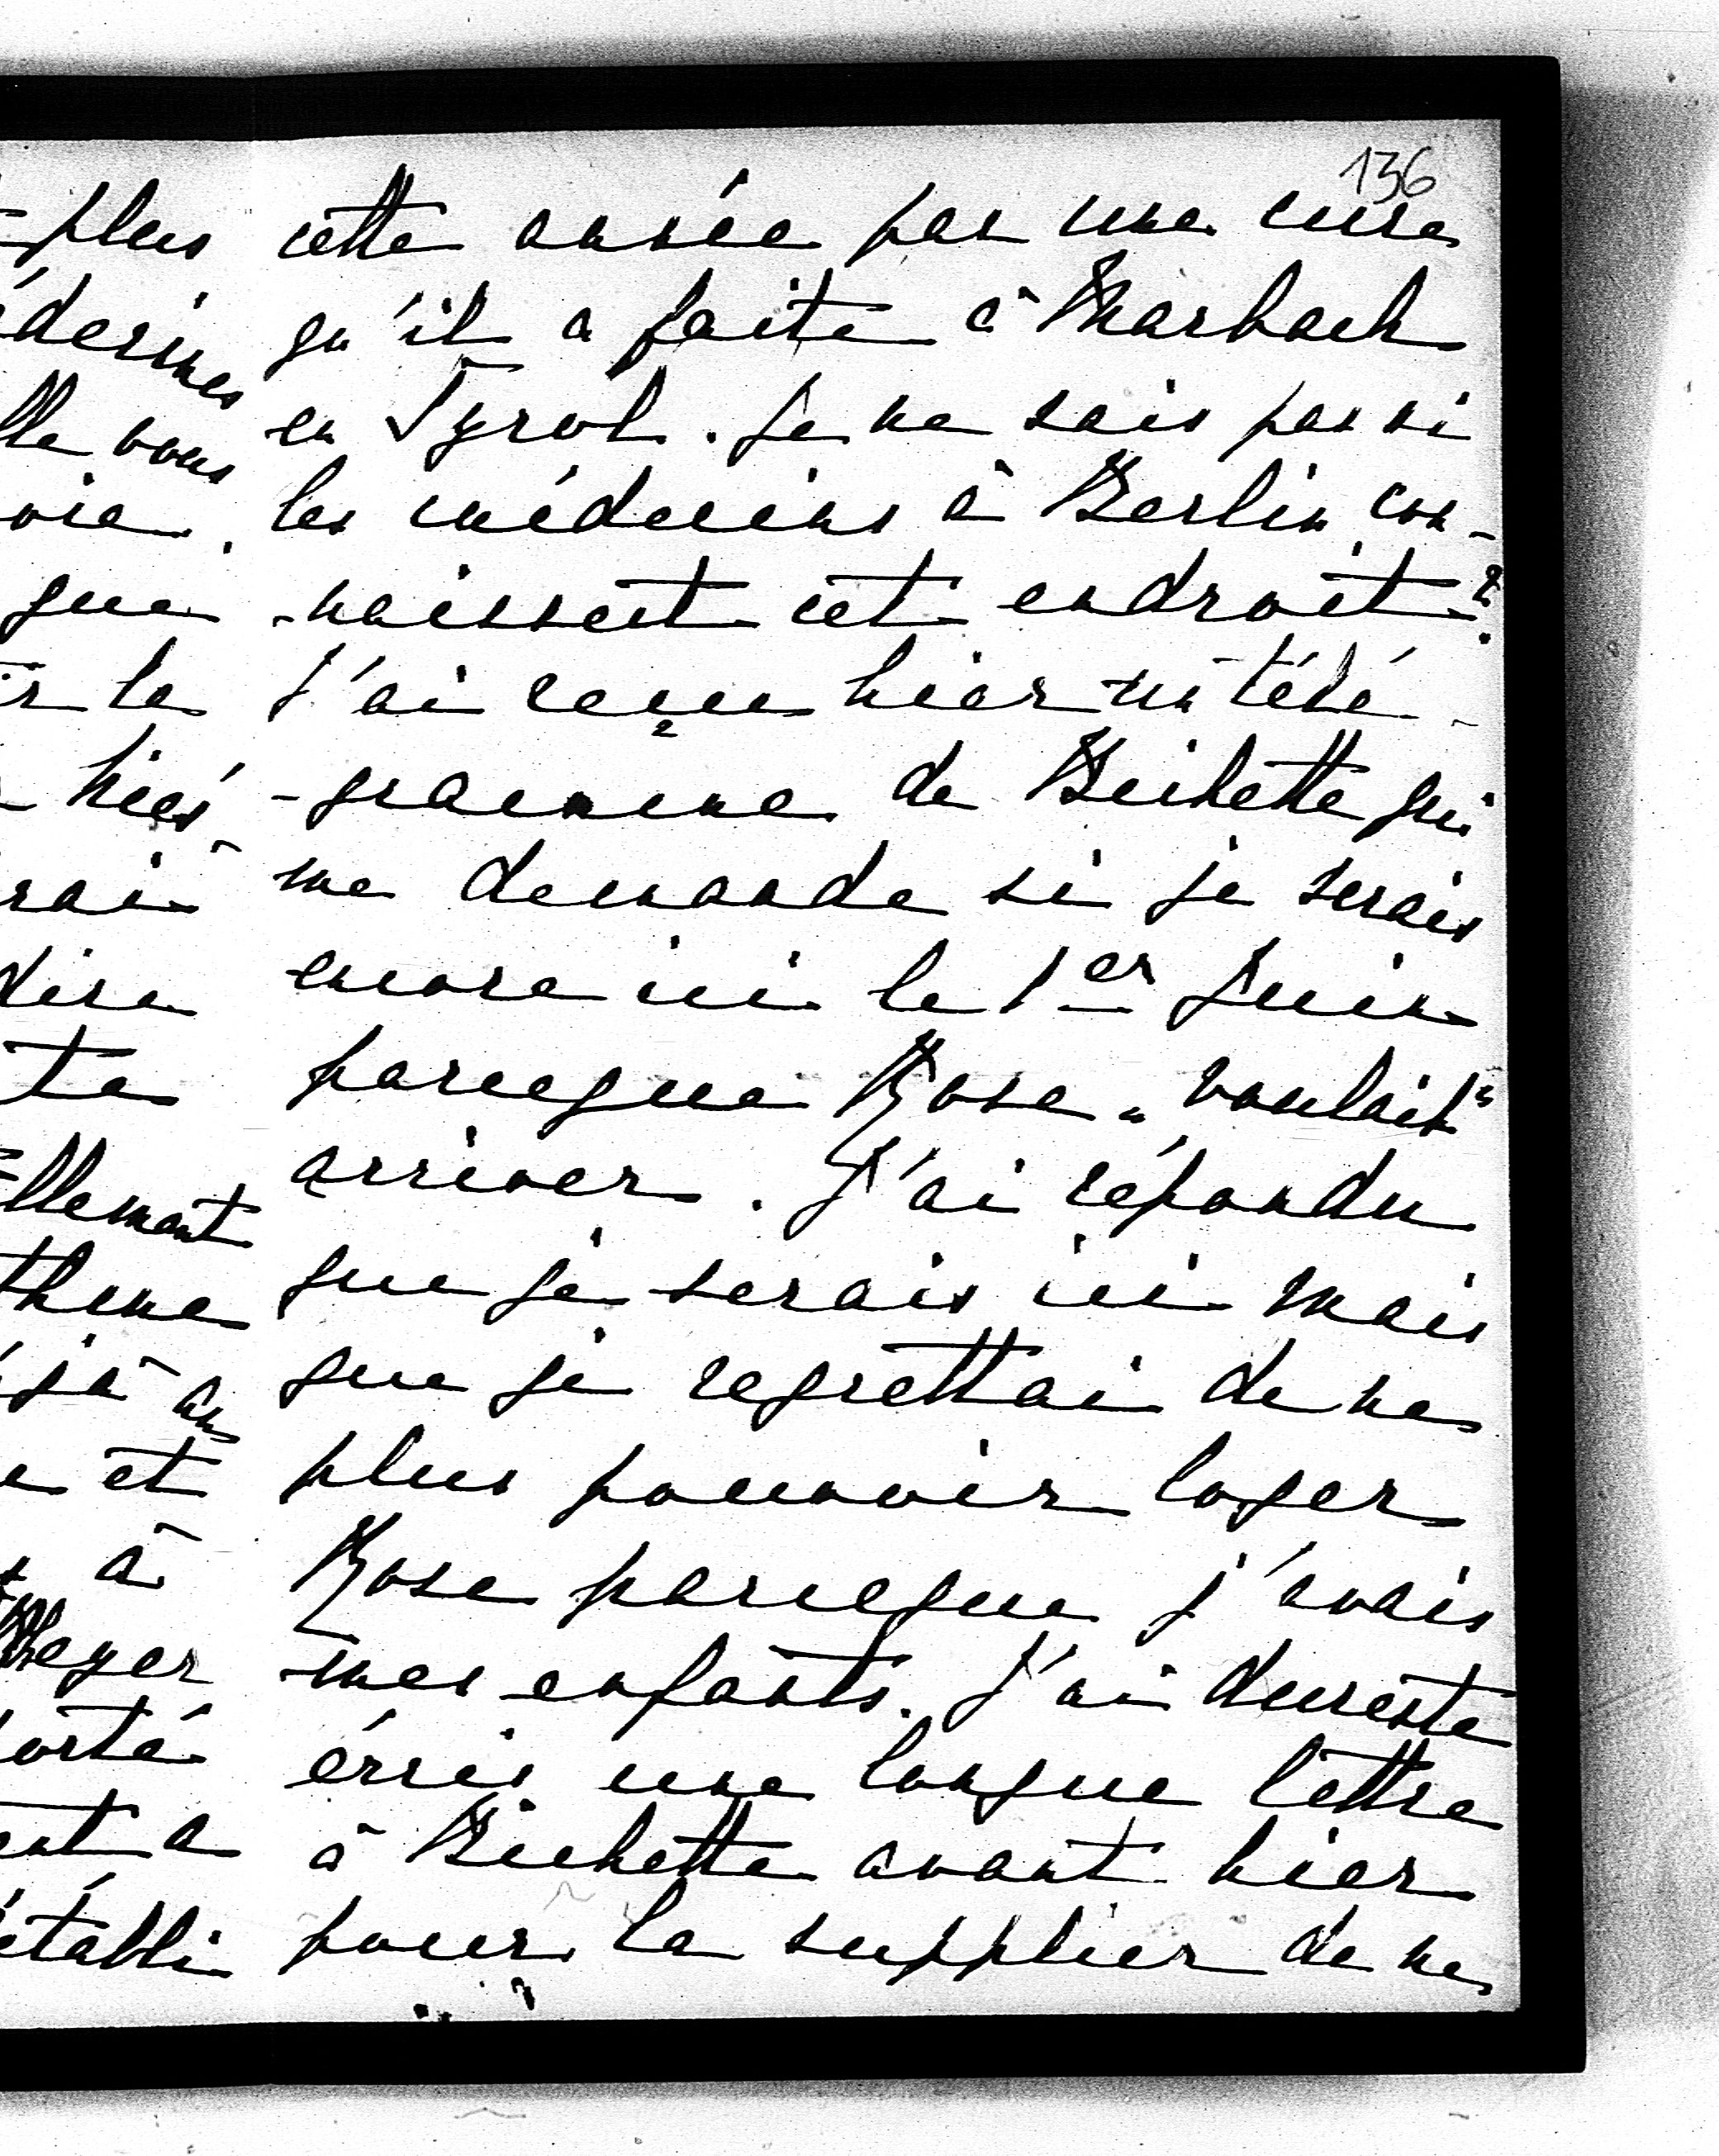 136
cette année par une cure
qu'il a faite à Marbach
en Tyrol. Je ne sais pas si
les médecins à Berlin con-
-naissent cet endroit?
J'ai reçu hier un télé-
-gramme de Bichette qui
me demande si je serais
encore ici le 1er Juin
parceque Rose „voulait"
arriver. J'ai répondu
que je serais ici mais
que je regrettai de ne
plus pouvoir loger
Rose parceque j'avais
mes enfants. J'ai dureste
écris une longue lettre
à Bichette avant hier
pour la supplier de ne
plus
lle vous
que
la
hier
dire
te
llement
et
à
Meyer
a
établi